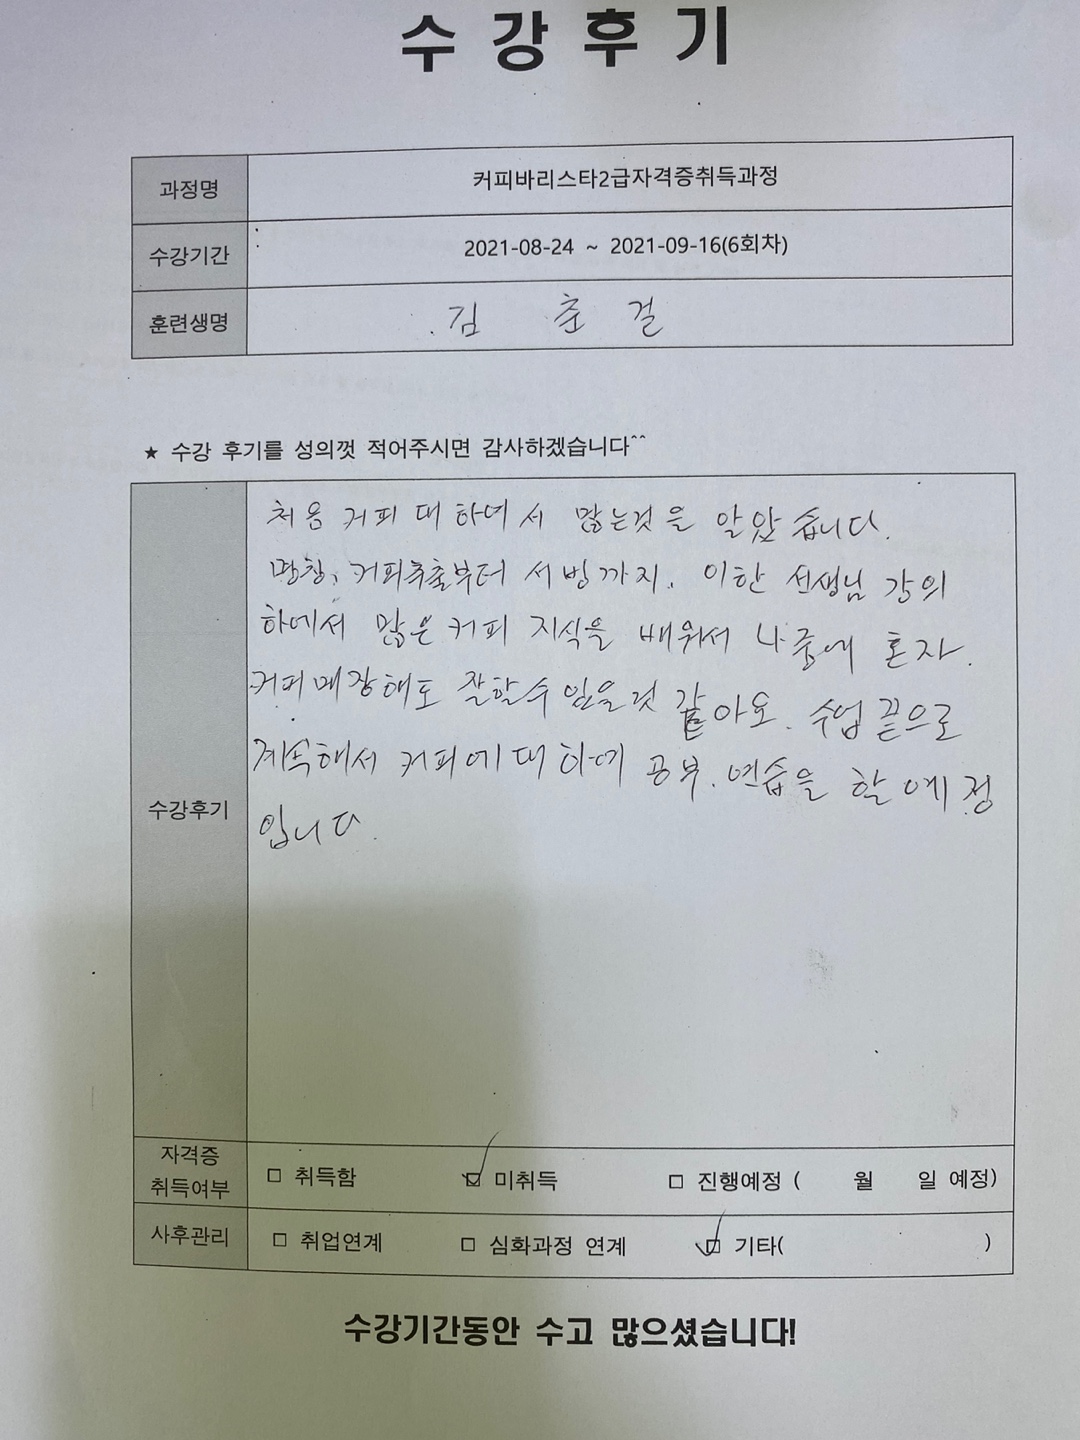 수강후기
과정명 커피바리스타2급자격증취득과정
수강기간 2021-08-24 ~ 2021-09-16(6회차)
훈련생명 김 춘 걸
★ 수강 후기를 성의껏 적어주시면 감사하겠습니다^^
수강후기
처음 커피 대하여서 많는것을 알았습니다.
명칭, 커피추출부터 서빙까지. 이한 선생님 강의
하에서 많은 커피 지식을 배워서 나중에 혼자
커피매장해도 잘할수있을것 같아요. 수업 끝으로
계속해서 커피에 대하여 공부. 연습을 할 예정
입니다.
자격증 취득여부 □ 취득함 ☑ 미취득 □ 진행예정 ( 월 일 예정)
사후관리 □ 취업연계 □ 심화과정 연계 ☑ 기타( )
수강기간동안 수고 많으셨습니다!